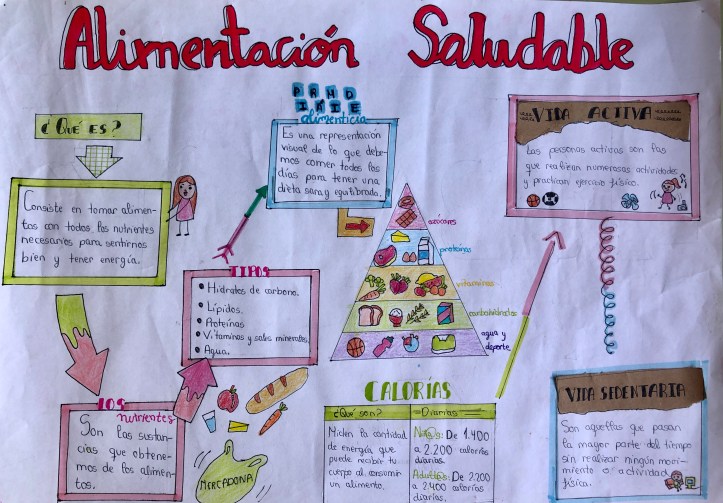 Alimentación Saludable
¿Qué es?
Consiste en tomar alimen-
tos con todos los nutrientes
necesarios para sentirnos
bien y tener energía.
LOS
nutrientes
Son las sustan-
cias que obtene-
mos de los alimen-
tos.
TIPOS
Hidratos de carbono.
Lípidos.
Proteínas
Vitaminas y sales minerales.
Agua.
MERCADONA
alimenticia
Es una representación
visual de lo que debe-
mos comer todos los
días para tener una
dieta sana y equilibrada.
azúcares
proteínas
vitaminas
carbohidratos
agua y
deporte
CALORÍAS
¿Qué son?
Miden la cantidad
de energía que
puede recibir tu
cuerpo al consumir
un alimento.
Diarias
De 1.400
a 2.200 calorías
diarias.
Adultos: De 2.200
a 2.400 calorías
diarias.
VIDA ACTIVA
Las personas activas son las
que realizan numerosas actividades
y practican ejercicio físico.
VIDA SEDENTARIA
Son aquellas que pasan
la mayor parte del tiempo
sin realizar ningún movi-
miento o actividad
física.